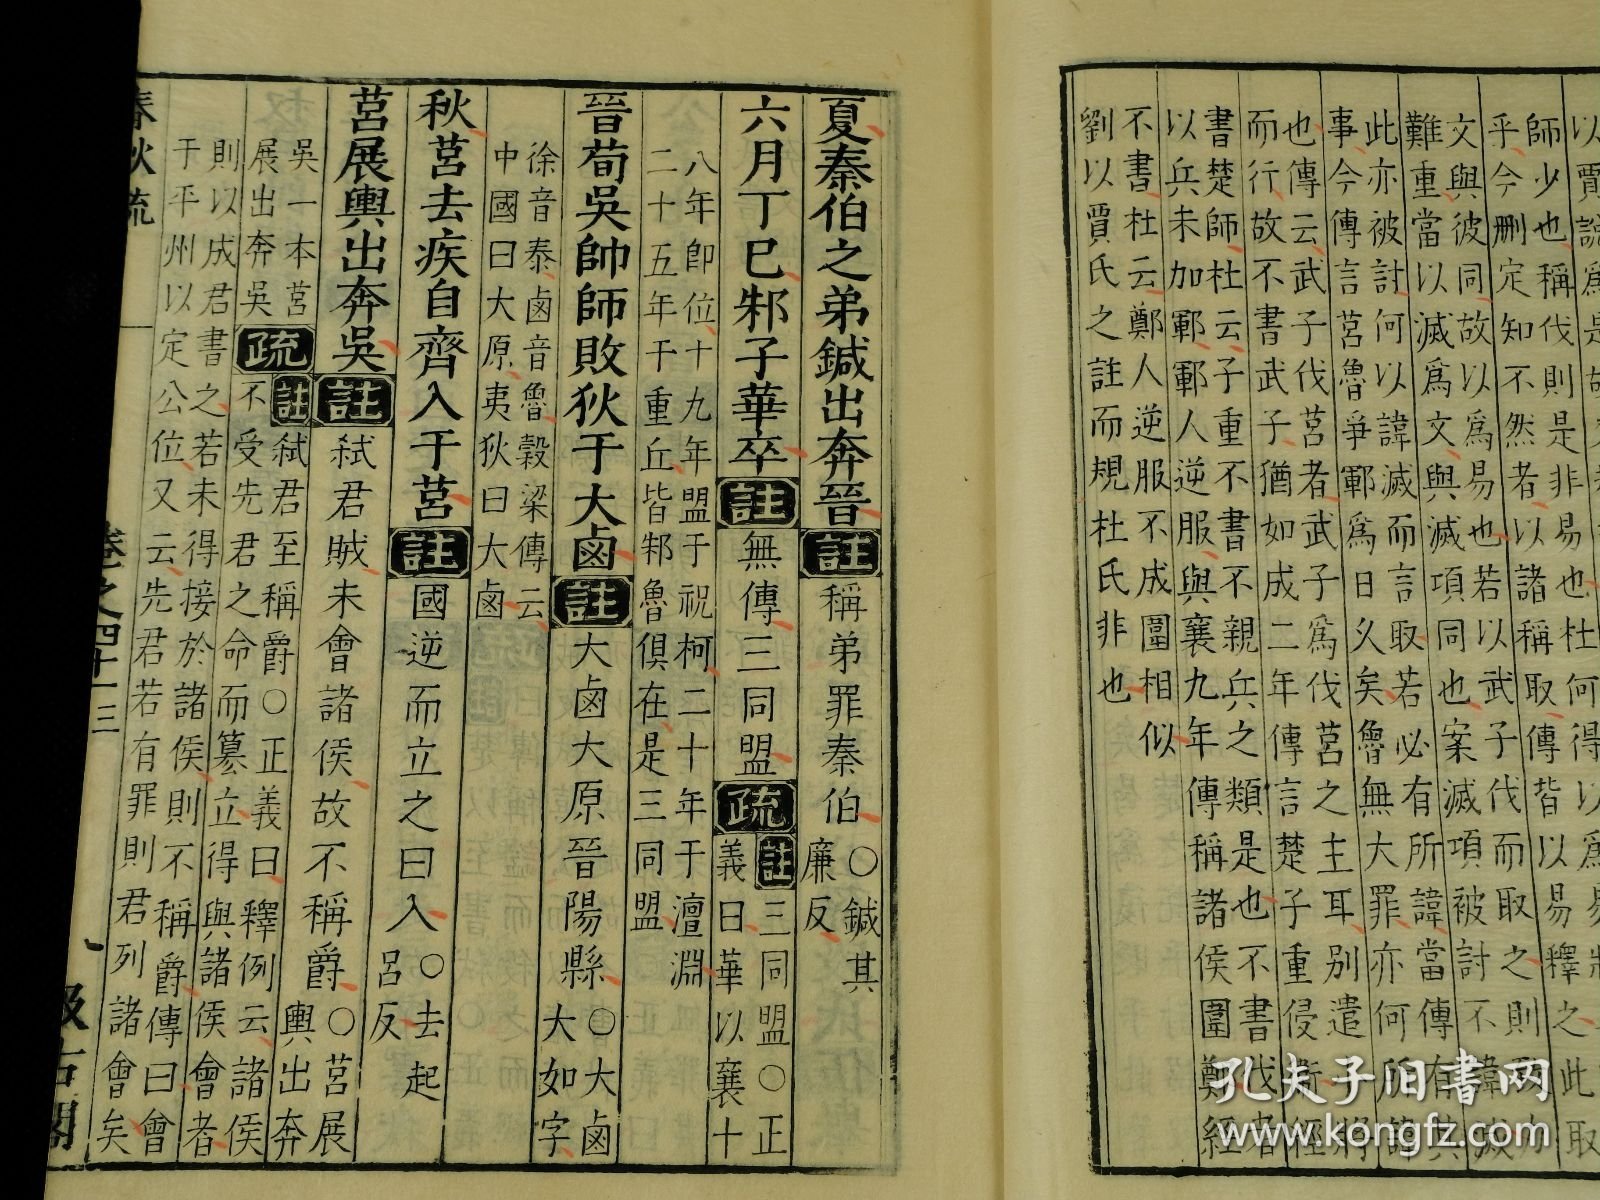 以賈說爲是故
師少也稱伐則是非易也杜何得以爲易
乎今刪定知不然者以諸稱取傳皆以易釋之此取
文與彼同故以爲易也若以武子伐而取之則
難重當以滅爲文與滅項同也案滅項被討不諱
此亦被討何以諱滅而言取若必有所諱當傳有其
事今傳言莒魯爭鄆爲日久矣魯無大罪亦何所諱
也傳云武子伐莒者武子爲伐莒之主耳別遣將
而行故不書武子猶如成二年傳言楚子重侵衛經
書楚師杜云子重不書不親兵之類是也不書伐者
以兵未加鄆鄆人逆服與襄九年傳稱諸侯圍鄭經
不書杜云鄭人逆服不成圍相似
劉以賈氏之註而規杜氏非也
夏秦伯之弟鍼出奔晉註稱弟罪秦伯○鍼其
廉反
六月丁巳邾子華卒註無傳三同盟疏註三同盟○正
義曰華以襄十
八年即位十九年盟于祝柯二十年于澶淵
二十五年于重丘皆邾魯俱在是三同盟
晉荀吳帥師敗狄于大鹵註大鹵大原晉陽縣○大鹵
大如字
徐音泰鹵音魯穀梁傳云
中國曰大原夷狄曰大鹵
秋莒去疾自齊入于莒註國逆而立之曰入○去起
呂反
莒展輿出奔吳註弒君賊未會諸侯故不稱爵○莒展
輿出奔
吳一本莒
展出奔吳疏註弒君至稱爵○正義曰釋例云諸侯
不受先君之命而篡立得與諸侯會者
則以成君書之若未得接於諸侯則不稱爵傳曰會
于平州以定公位又云先君若有罪則君列諸會矣
春秋疏 卷之四十一 三 八 汲古閣
孔夫子旧书网
www.kongfz.com